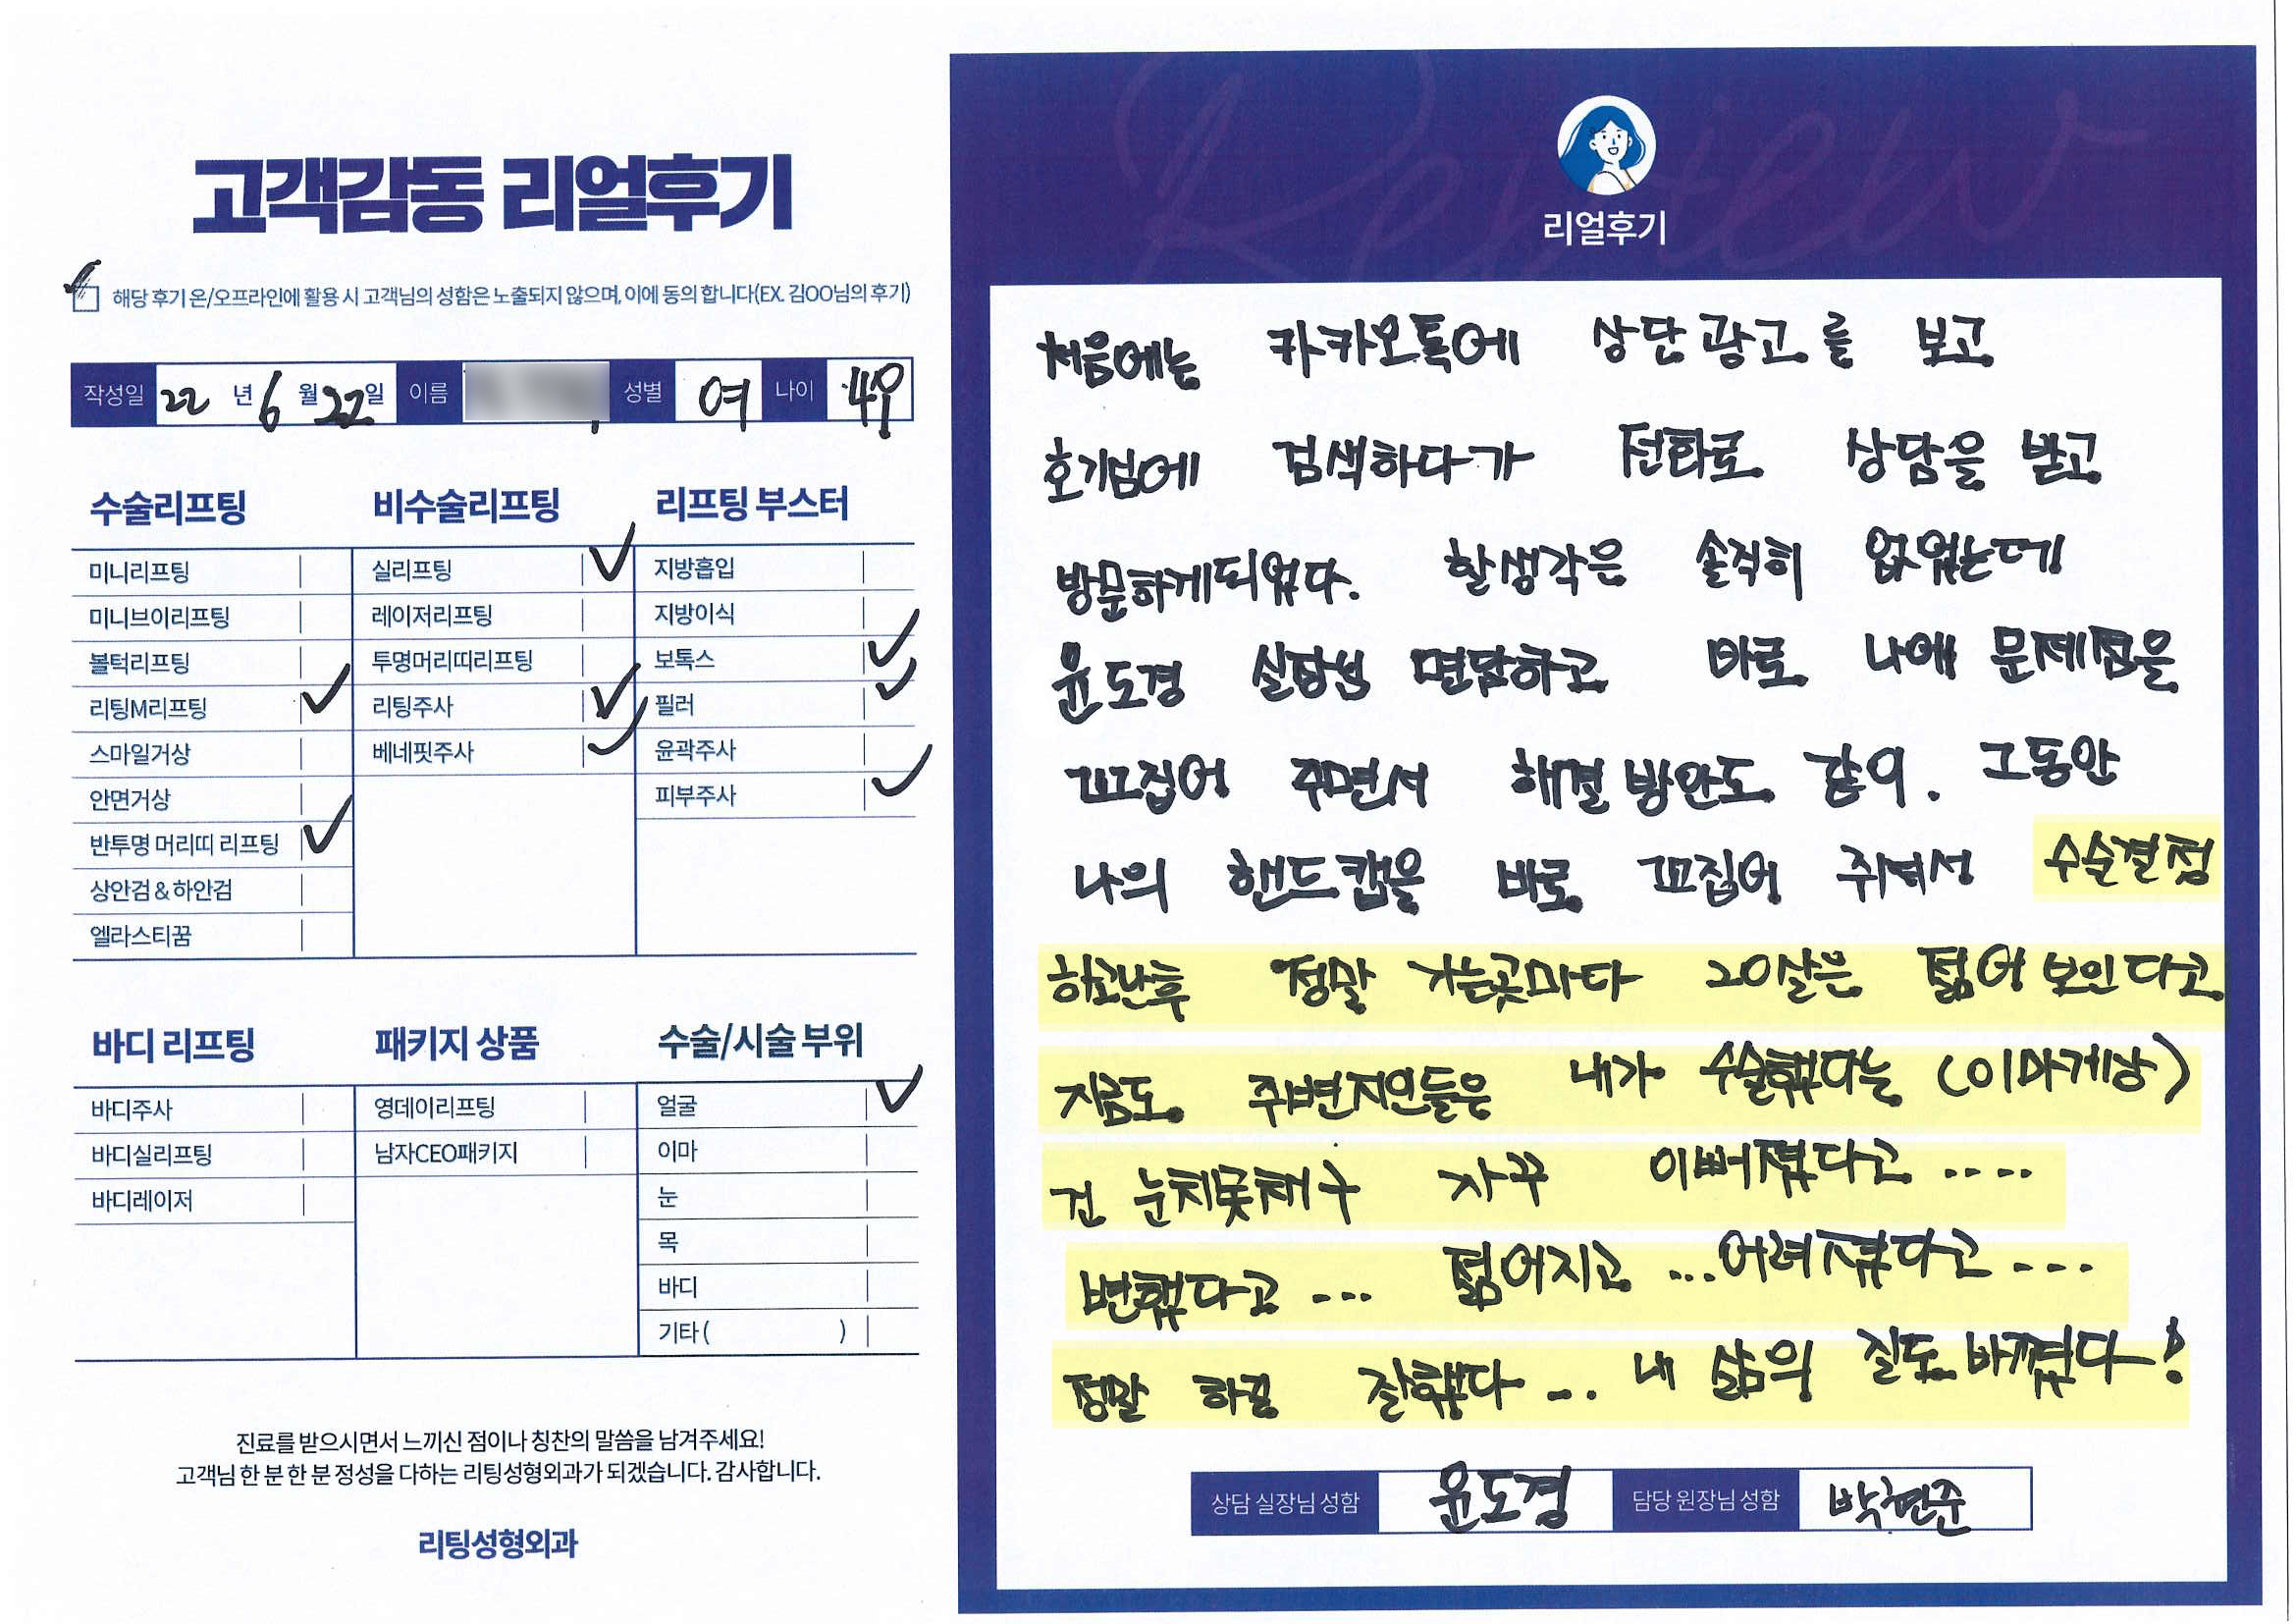 고객감동 리얼후기
해당 후기 온/오프라인에 활용 시 고객님의 성함은 노출되지 않으며, 이에 동의 합니다(EX. 김OO님의 후기)
작성일 22 년 6 월 22 일 이름 성별 여 나이 49
수술리프팅
미니리프팅
미니브이리프팅
볼턱리프팅
리팅M리프팅
스마일거상
안면거상
반투명 머리띠 리프팅
상안검 & 하안검
엘라스티꿈
비수술리프팅
실리프팅
레이저리프팅
투명머리띠리프팅
리팅주사
베네핏주사
리프팅 부스터
지방흡입
지방이식
보톡스
필러
윤곽주사
피부주사
바디 리프팅
바디주사
바디실리프팅
바디레이저
패키지 상품
영데이리프팅
남자CEO패키지
수술/시술 부위
얼굴
이마
눈
목
바디
기타 ( )
진료를 받으시면서 느끼신 점이나 칭찬의 말씀을 남겨주세요!
고객님 한 분 한 분 정성을 다하는 리팅성형외과가 되겠습니다. 감사합니다.
리팅성형외과
Review
리얼후기
처음에는 카카오톡에 상단광고를 보고
호기심에 검색하다가 전화로 상담을 받고
방문하게되었다. 할생각은 솔직히 없었는데
윤도경 실장님 면담하고 바로 나에 문제점을
꼬집어 주면서 해결방안도 같이. 그동안
나의 핸드캡을 바로 꼬집어 줘서 수술결정
하고난후 정말 가는곳마다 20살은 젊어보인다고
지금도 주변지인들은 내가 수술했다는 (이마거상)
건 눈치못채구 자꾸 이뻐졌다고 ....
변했다고 ... 젊어지고 ...어려졌다고 ...
정말 하길 잘했다 ... 내 삶의 질도 바꼈다!
상담 실장님 성함 윤도경 담당 원장님 성함 박현준